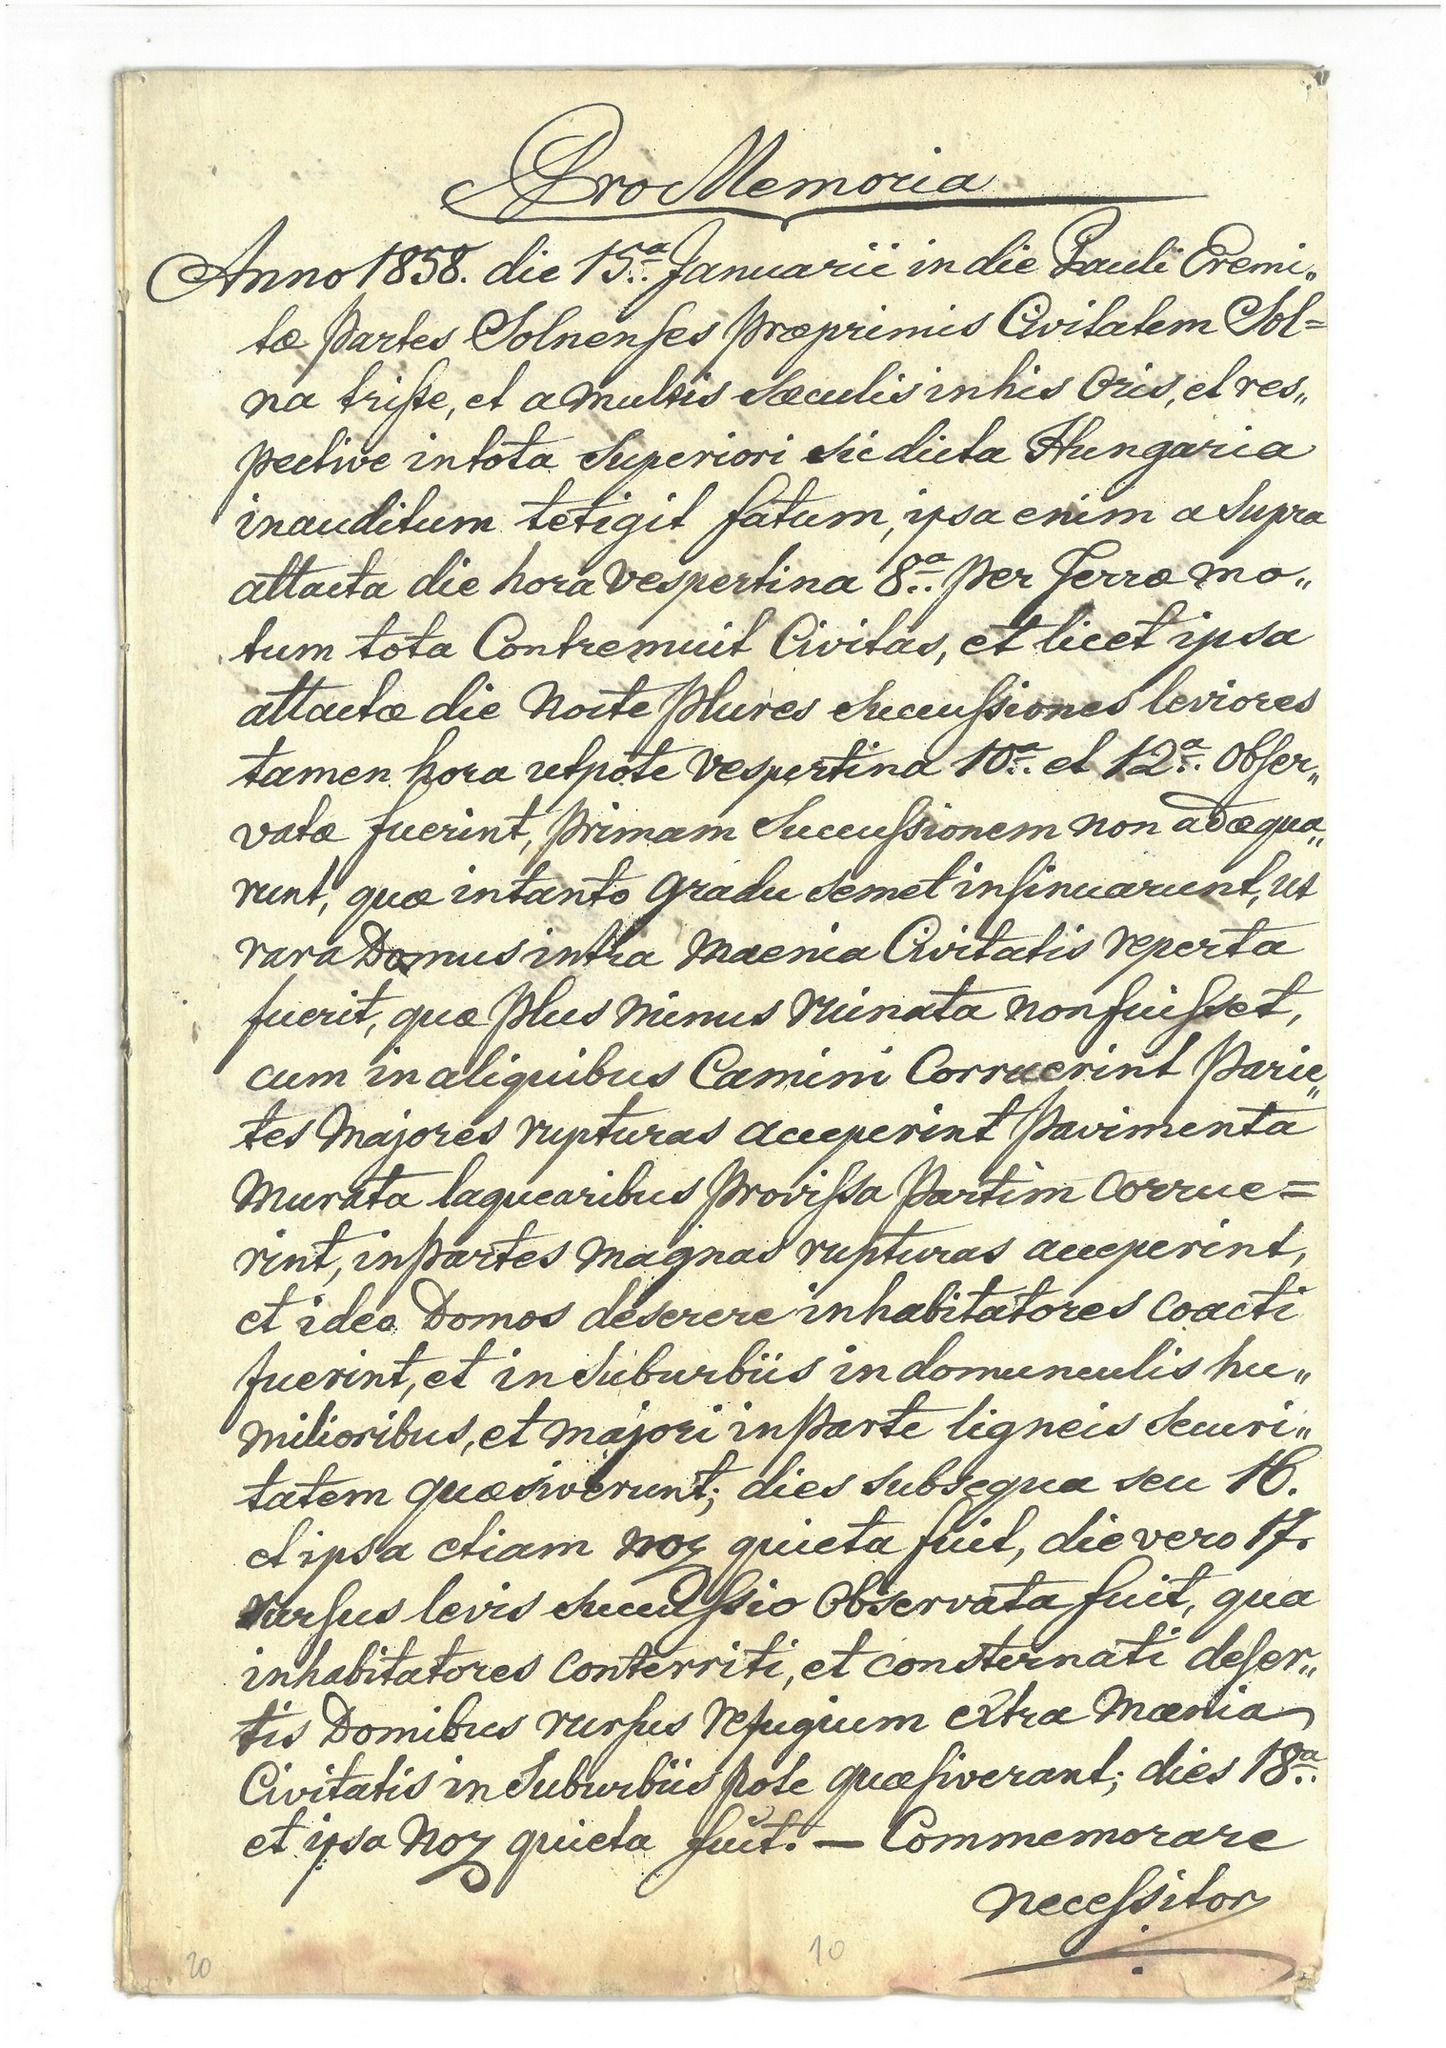 Pro Memoria
Anno 1858. die 15a Januarii in die Pauli Eremi„
tæ partes Solnenses præprimis Civitatem Sol=
na triste, et a multis sæculis in his Oris, et res„
pective in tota Superiori sic dicta Hungaria
inauditum tetigit fatum, ipsa enim a supra
attacta die hora Vespertina 8a per Terræ mo„
tum tota Contremuit Civitas, et licet ipsa
attactæ die Nocte plures succussiones leviores
tamen hora utpote Vespertina 10a et 12a Obser„
vatæ fuerint, primam Succussionem non adæqua„
runt, quæ in tanto gradu semet insinuarunt, ut
rara Domus intra Maenia Civitatis reperta
fuerit, quæ plus minus ruinata non fuisset,
cum in aliquibus Camini Corruerint parie„
tes Majores rupturas acceperint pavimenta
Murata laquearibus provissa partim Corrue=
rint, in partes magnas rupturas acceperint,
et ideo Domos deserere inhabitatores coacti
fuerint, et in Suburbiis in domunculis hu„
milioribus, et majori in parte ligneis securi„
tatem quæsiverunt; dies subsequa seu 16.
et ipsa etiam nox quieta fuit, die vero 17.
rursus levis succussio Observata fuit, qua
inhabitatores conterriti, et consternati deser„
tis Domibus rursus refugium extra Mænia
Civitatis in Suburbiis pote quæsiverant; dies 18a
et ipsa Nox quieta fuit. — Commemorare
necessitor
20 10